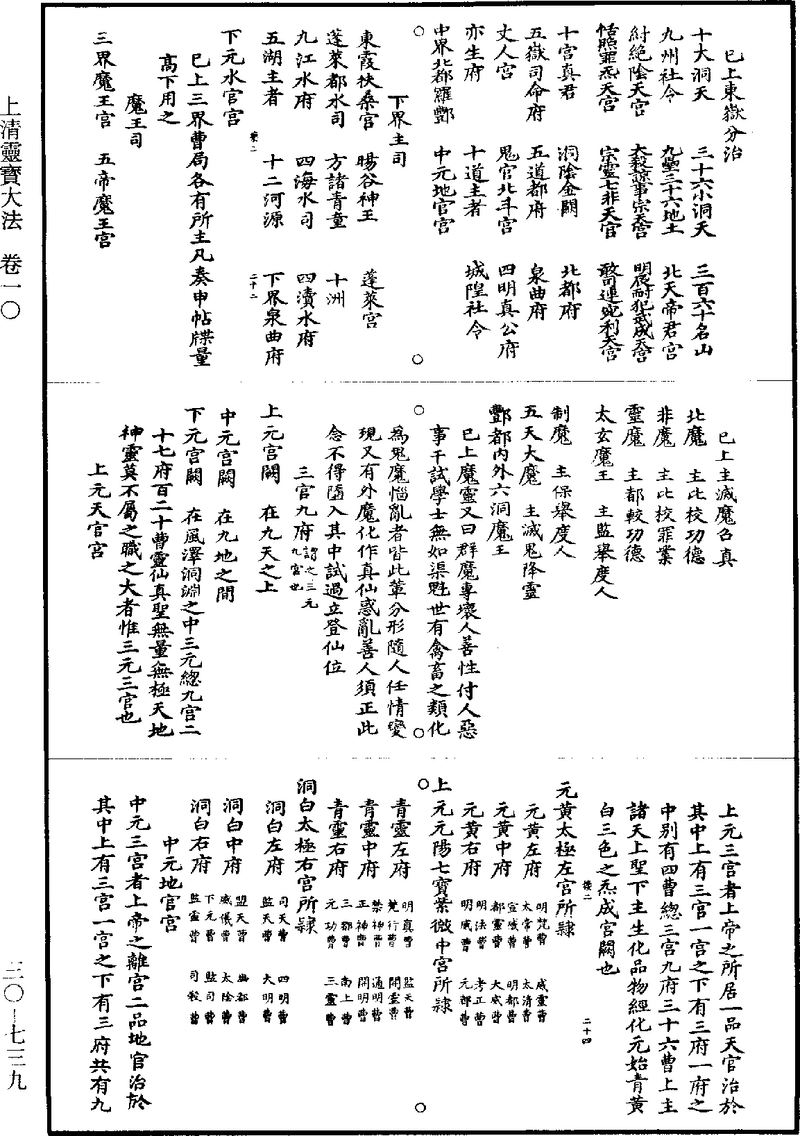 上清靈寳大法　卷一〇
三〇—七三九
已上東嶽分治
十大洞天　三十六小洞天　三百六十名山
九州社令　九壘三十六地土　北天帝君宮
紂絕陰天宮　太殺諒事宗天宮　明辰耐犯武成天宮
恬照罪炁天宮　宗靈七非天宮　敢司連宛利天宮
十宮真君　洞陰金闕　北都府
五嶽司命府　五道都府　泉曲府
丈人宮　鬼官北斗宮　四明真公府
亦生府　十道主者　城隍社令
中界北都羅酆　中元地官宮
下界主司
東霞扶桑宮　暘谷神王　蓬萊宮
蓬萊都水司　方諸青童　十洲
九江水府　四海水司　四瀆水府
五湖主者　十二河源　下界泉曲府
下元水官宮
已上三界曹局各有所主凡奏申帖牒量
高下用之
魔王司
三界魔王宮　五帝魔王宮
已上主滅魔召真
北魔　主比校功德
非魔　主比校罪業
靈魔　主都較功德
太玄魔王　主監舉度人
制魔　主保舉度人
五天大魔　主滅鬼降靈
酆都內外六洞魔王
已上魔靈又曰群魔專壞人善性付人惡
事干試學士無如渠魁世有禽畜之類化
為鬼魔惱亂者皆此輩分形隨人任情變
現又有外魔化作真仙惑亂善人須正此
念不得隨入其中試過立登仙位
三官九府謂之三元九宮也
上元宮闕　在九天之上
中元宮闕　在九地之間
下元宮闕　在風澤洞淵之中三元總九宮二
十七府百二十曹靈仙真聖無量無極天地
神靈莫不屬之職之大者惟三元三官也
上元天官宮
上元三宮者上帝之所居一品天官治於
其中上有三宮一宮之下有三府一府之
中別有四曹總三宮九府三十六曹上主
諸天上聖下主生化品物經化元始青黃
白三色之炁成宮闕也
元黃太極左宮所隸
元黃左府　明梵曹　威靈曹　太常曹　太清曹
元黃中府　宣威曹　明都曹　都靈曹　大威曹
元黃右府　明法曹　考正曹　明威曹　元都曹
上元元陽七寶紫微中宮所隸
青靈左府　明真曹　監天曹　梵行曹　開靈曹
青靈中府　禁神曹　通明曹　正神曹　開明曹
青靈右府　三都曹　南上曹　元功曹　三靈曹
洞白太極右宮所隸
洞白左府　司天曹　四明曹　監天曹　大明曹
洞白中府　盟天曹　幽都曹　威儀曹　太陰曹
洞白右府　下元曹　監司曹　監靈曹　司殺曹
中元地官宮
中元三宮者上帝之離宮二品地官治於
其中上有三宮一宮之下有三府共有九